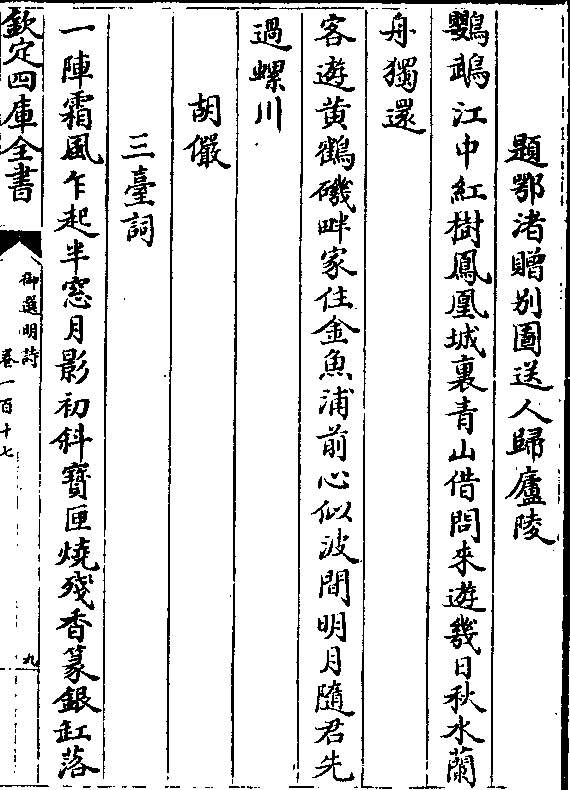 題鄂渚贈别圖送人歸廬陵
鸚鵡江中紅樹鳳凰城裏青山借問來遊幾日秋水蘭
舟獨還
客遊黄鶴磯畔家住金魚浦前心似波間明月隨君先
過螺川
胡儼
三臺詞
一陣霜風乍起半窓月影初斜寶匣燒殘香篆銀缸落
欽定四庫全書
御選明詩
卷一百十七
九